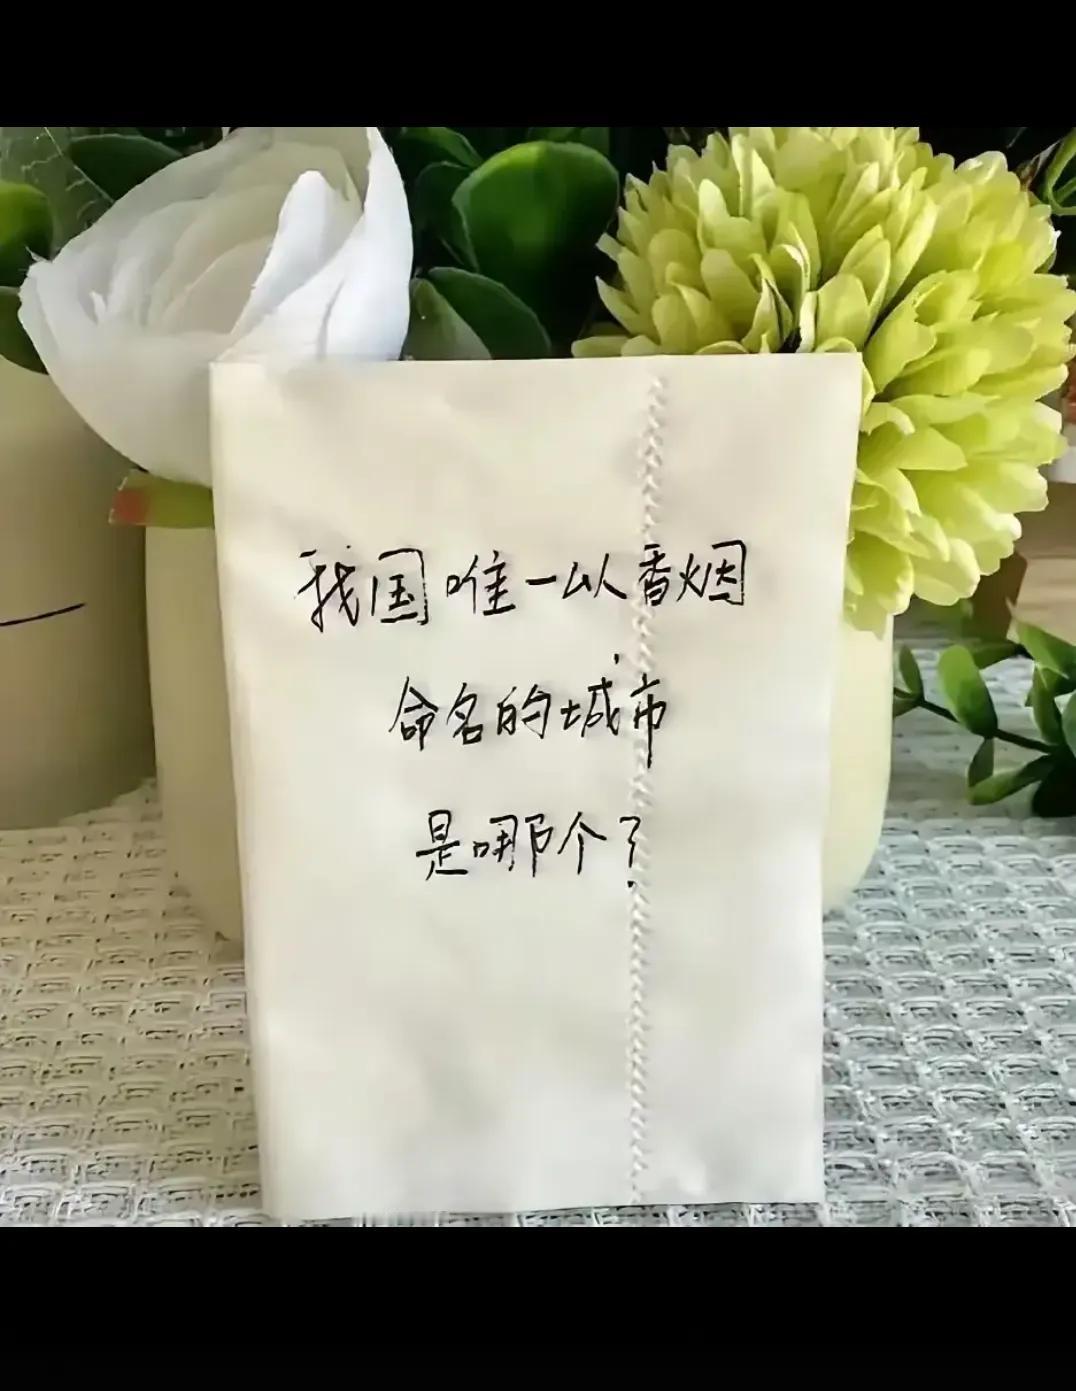 我国唯一以香烟
命名的城市
是哪个？